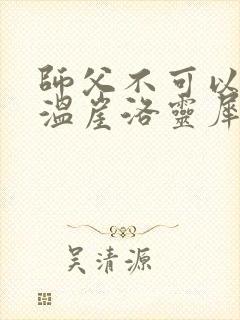 師父不可以
溫崖洛靈犀
吳清源